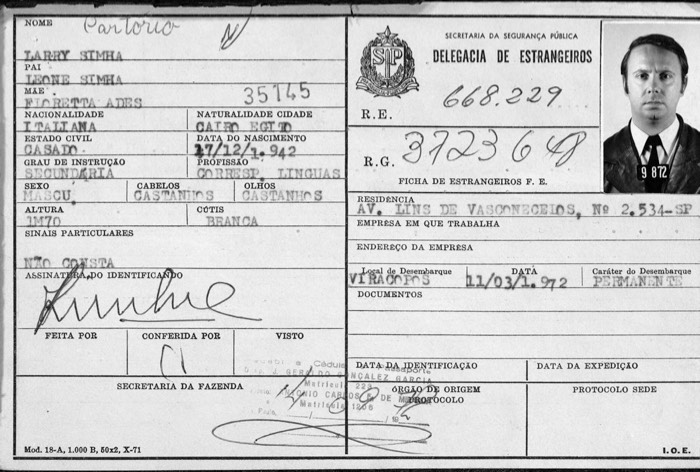 NOME
LARRY SIMHA
PAI
LEONE SIMHA
MÃE
FIORETTA ADES
35145
NACIONALIDADE NATURALIDADE CIDADE
ITALIANA CAIRO EGITO
ESTADO CIVIL DATA DO NASCIMENTO
CASADO 17/12/1.942
GRAU DE INSTRUÇÃO PROFISSÃO
SECUNDÁRIA CORRESP. LINGUAS
SEXO CABELOS OLHOS
MASCU. CASTANHOS CASTANHOS
ALTURA CÚTIS
1M70 BRANCA
SINAIS PARTICULARES
NÃO CONSTA
ASSINATURA DO IDENTIFICANDO
FEITA POR CONFERIDA POR VISTO
SECRETARIA DA FAZENDA
Mod. 18-A, 1.000 B, 50x2, X-71
SP
SECRETARIA DA SEGURANÇA PÚBLICA
DELEGACIA DE ESTRANGEIROS
R.E. 668.229
R.G. 3723648
FICHA DE ESTRANGEIROS F. E.
9 872
RESIDÊNCIA
AV. LINS DE VASCONECEIOS, Nº 2.534-SP
EMPRESA EM QUE TRABALHA
ENDEREÇO DA EMPRESA
Local de Desembarque DATA Caráter do Desembarque
VIRACOPOS 11/03/1.972 PERMANENTE
DOCUMENTOS
DATA DA IDENTIFICAÇÃO DATA DA EXPEDIÇÃO
ÓRGÃO DE ORIGEM PROTOCOLO SEDE
PROTOCOLO
J. GERALDO GONÇALEZ GARCIA
Matrícula 229
Matrícula 1206
I.O.E.